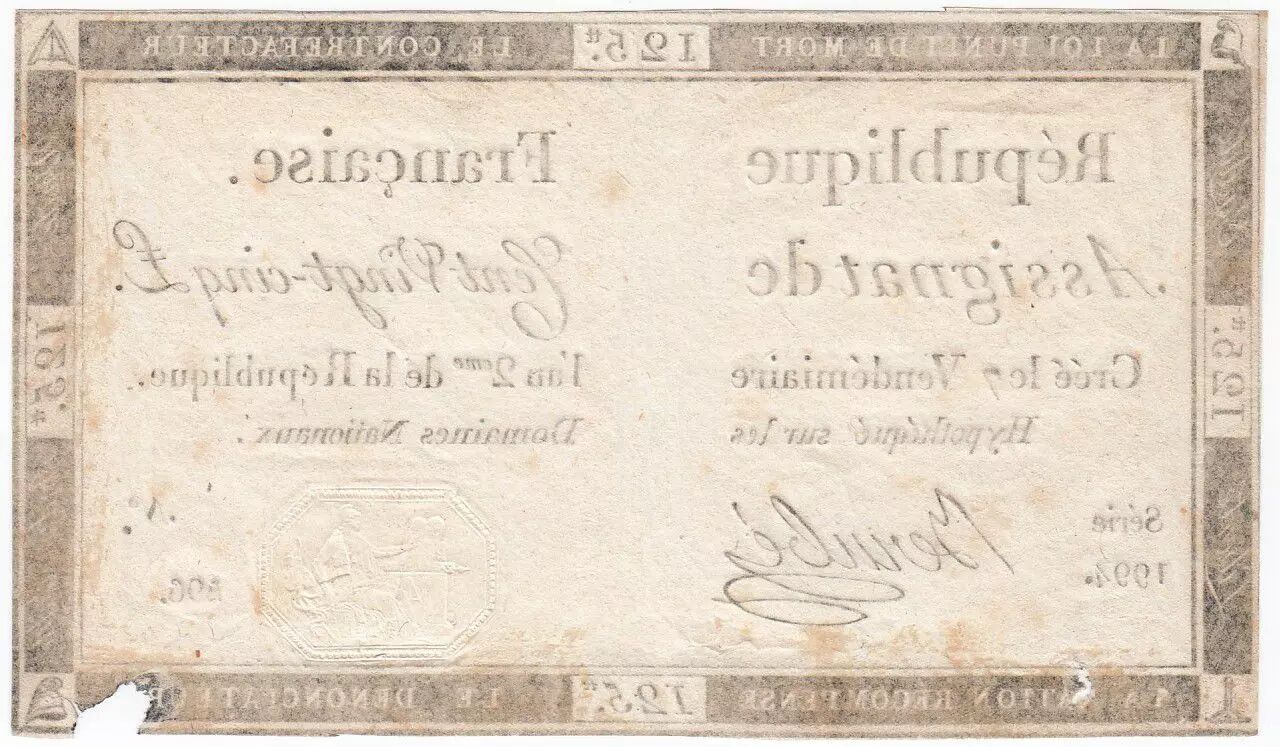 LA LOI PUNIT DE MORT 125.# LE CONTREFACTEUR
République Française.
Assignat de Cent Vingt-cinq £.
Créé le 7 Vendémiaire l'an 2eme de la République.
Hypothéqué sur les Domaines Nationaux.
Série 1994.
No. 896.
125.#
125.#
LA NATION RÉCOMPENSE 125.# LE DÉNONCIATEUR